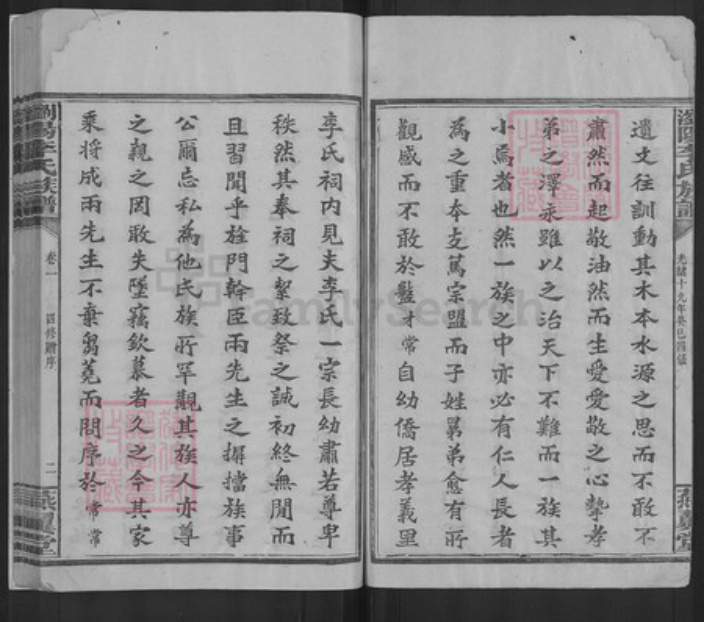 瀏陽李氏族譜
光緒十九年癸巳四修
遺文往訓動其木本水源之思而不敢不
肅然而起敬油然而生愛愛敬之心摯孝
弟之澤永雖以之治天下不難而一族其
小焉者也然一族之中亦必有仁人長者
為之重本支篤宗盟而子姓羣弟愈有所
觀感而不敢於懟才常自幼僑居孝義里
李氏祠內見夫李氏一宗長幼肅若尊卑
秩然其奉祠之絜致祭之誠初終無閒而
且習聞乎旌門幹臣兩先生之摒擋族事
公爾忘私為他氏族所罕覯其族人亦尊
之親之罔敢失墜竊欽慕者久之今其家
乘將成兩先生不棄芻蕘而問序於常常
瀏陽李氏族譜
卷一
四修贈序
二
燕翼堂